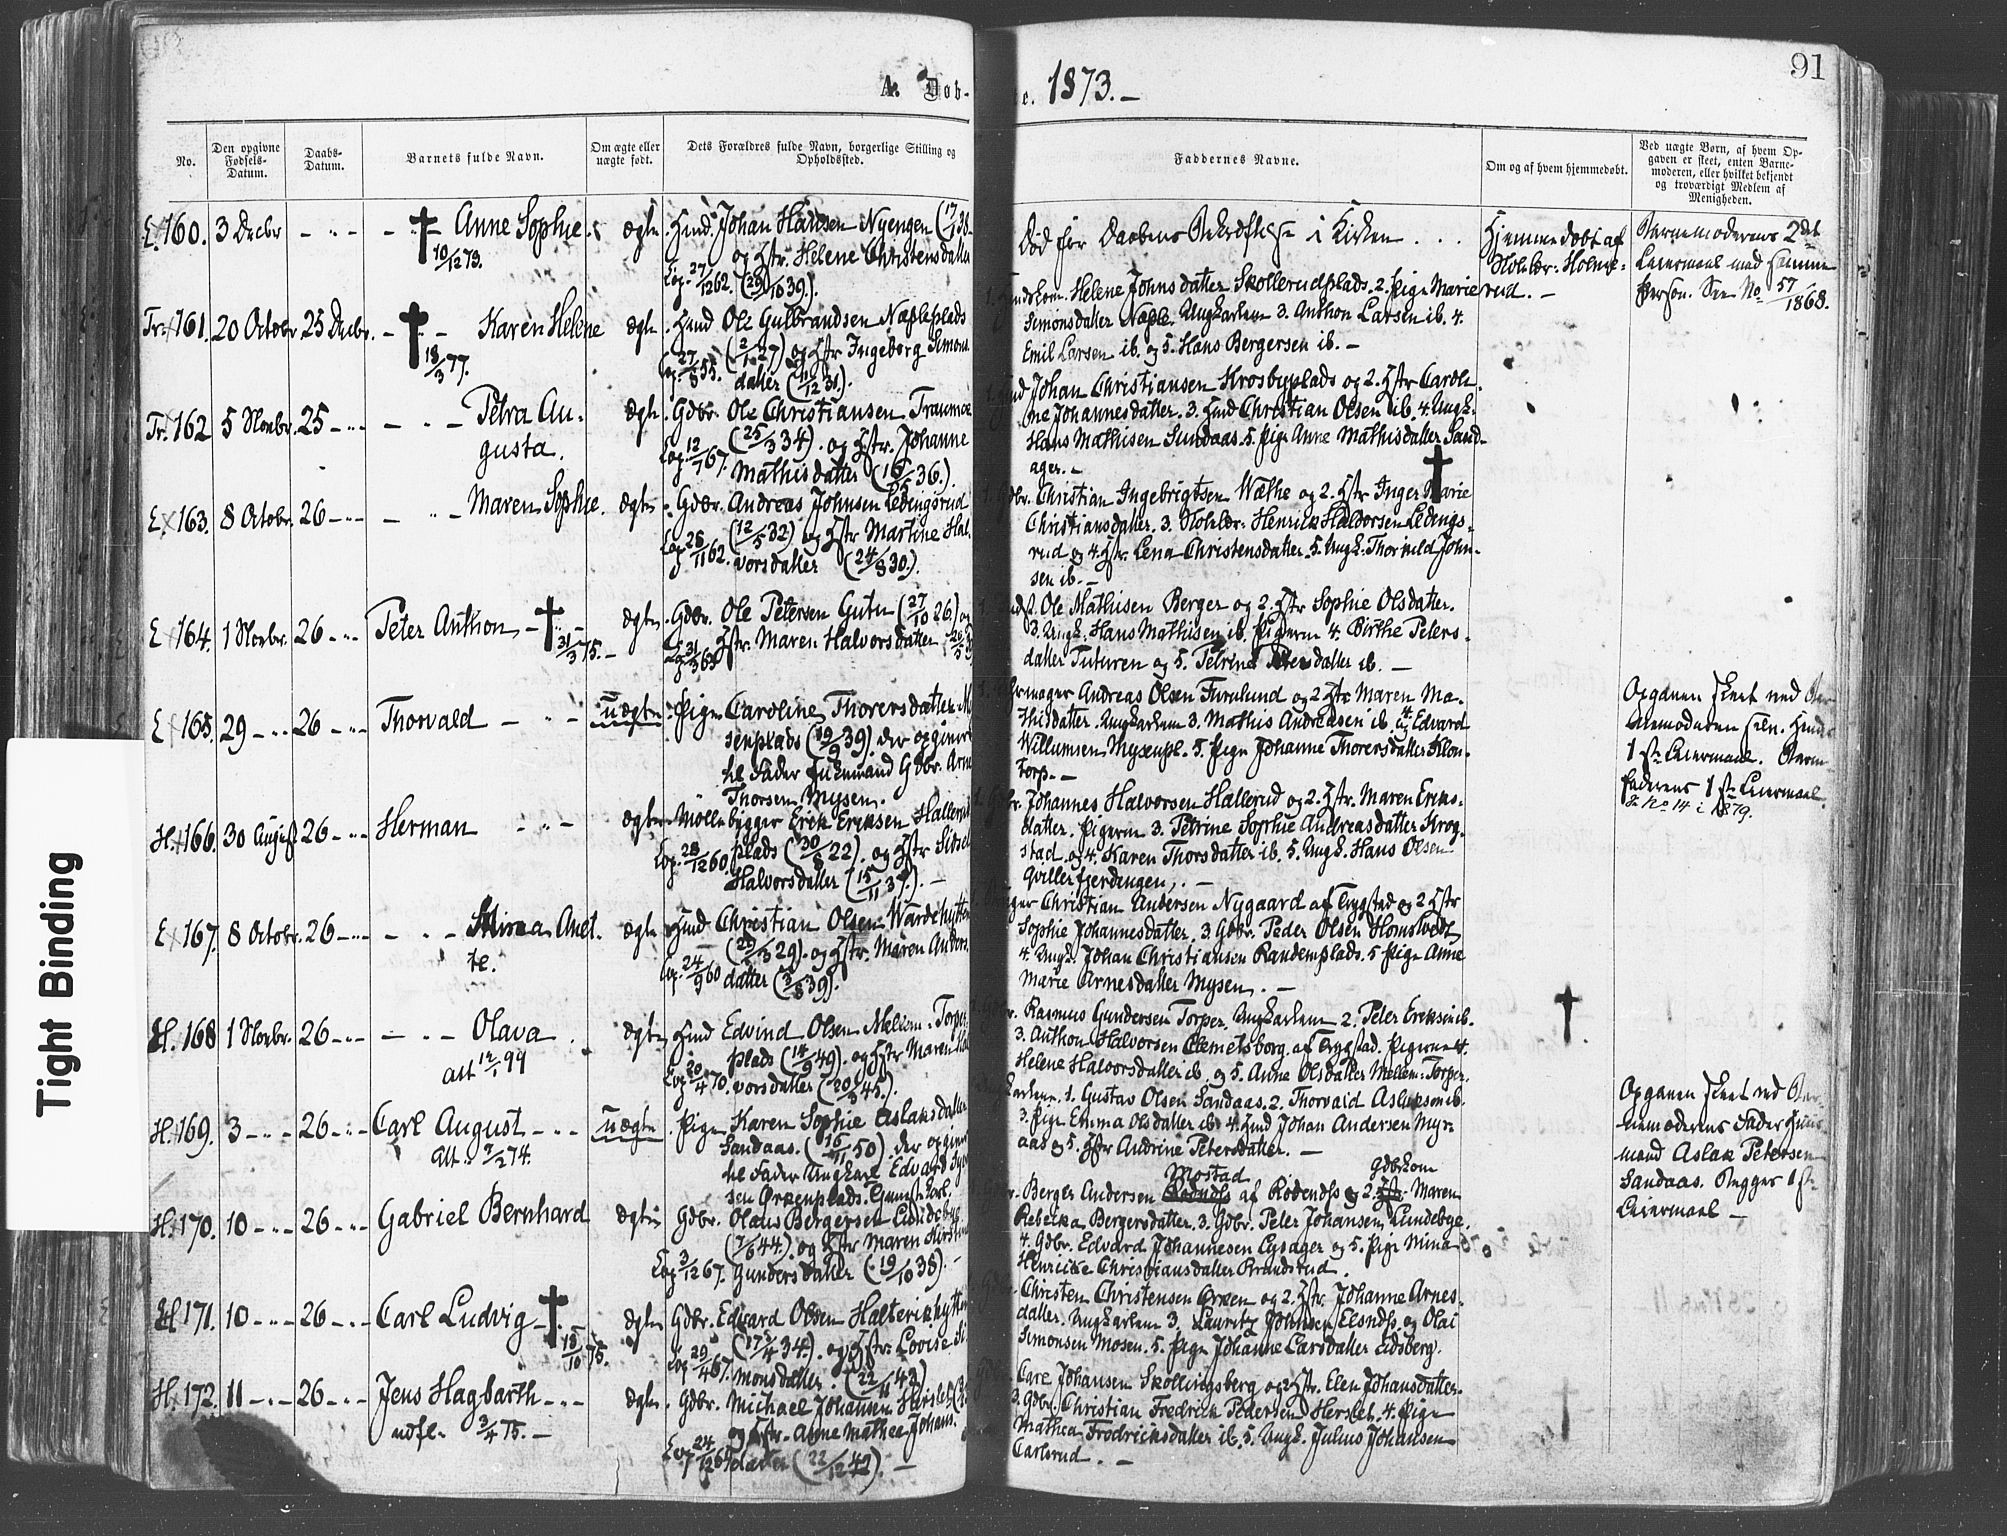 91
A. Døb-
e. 1873.–
No.
Den opgivne Fødsels-Datum.
Daabs-Datum.
Barnets fulde Navn.
Om ægte eller uægte født.
Dets Forældres fulde Navn, borgerlige Stilling og Opholdssted.
Faddernes Navne.
Om og af hvem hjemmedøbt.
Ved uægte Børn, af hvem Op-
gaven er skeet, enten Barne-
moderen, eller hvilket bekjendt
og troværdigt Medlem af
Menigheden.
E. 160. 3 Decbr – " – – " † Anne Sophie. ægte Huusm. Johan Hansen Nyengen (17/
10/12 73. og Hstr. Helene Christensdatter
27/12 62. (29/10 39.).
Død før Daabens Bekræftelse i Kirken . . .
Hjemmedøbt af
Skolelær. Holme-
rud. –
Barnemoderens 2det
Leiermaal med samme
Person. See No 57/1868.
Tr. 161. 20 Octobr. 25 Decbr. – † " – Karen Helene ægte Huusm. Ole Gulbrandsen Næpleplads
18/3 77. 27/8 55. (2/10 27) og Hstr Ingeborg Simons
datter (11/12 31).
1. Huuskone Helene Johnsdatter Skollerudplads. 2. Pige Marie
Simonsdatter Næple. Ungkarlene 3. Anthon Larsen ib. 4.
Emil Larsen ib. og 5. Hans Bergersen ib. –
Tr. 162 5 Novbr. 25 – " – – " – Petra Au-
gusta.
ægte Gdbr. Ole Christiansen Traumoe
(25/3 34). og Hstr. Johanne
12/7 67. Mathisdatter (16/5 36.).
Johan Christiansen Krosbyplads og 2. Hstr Caroli-
ne Johannesdatter. 3. Huusm Christian Olsen ib. 4. Ungk.
Hans Mathisen Sundaas. 5. Pige Anne Mathisdatter Sand-
ager. –
E. 163. 8 Octobr. 26 – " – – " – Maren Sophie. ægte Gdbr. Andreas Johnsen Ledingsrud
(12/5 32) og Hstr Martine Hal-
28/11 62. vorsdatter (24/8 30.).
1. Gdbr. Christian Ingebrigtsen Wæthe og 2. Hstr Inger Marie †
Christiansdatter. 3. Skolelær. Henrick Halvorsen Ledings-
rud og 4. Hstr. Lena Christensdatter. 5. Ungk. Thorvald John-
sen ib. –
E 164. 1 Novbr. 26 – " – Peter Anthon – † –
31/3 75. –
ægte Gdbr. Ole Petersen Guten (27/10 26) og
Hstr. Maren Halvorsdatter
Ole Mathisen Berger og 2. Hstr Sophie Olsdatter.
3. Ungk. Hans Mathisen ib. Pigerne 4. Birthe Peters-
datter Tuturen og 5. Petrine Petersdatter ib. –
E 165. 29 – " – 26 – " – Thorvald – " – uægte Pige Caroline Thorersdatter
senplads (19/9 39). der opgiver
til Fader Enkemand Gdbr. Arne
Thorsen Mysen.
Andreas Olsen Furulund og 2. Hstr Maren Ma-
thisdatter. Ungkarlene 3. Mathis Andreasen ib. 4. Edvard
Willumsen Mysenpl. 5. Pige Johanne Thorersdatter Klon-
torp. –
Opgaven skeet ved Bar-
nemoderen selv. Hendes
1ste Leiermaal. Barne-
faderens 1ste Leiermaal.
No 14 i 1879.
H. 166. 30 August 26 – " – Herman – " – ægte Møllebygger Erik Eriksen Hallerud
28/12 60. plads (30/8 22). og Hstr Sidsel
Halvorsdatter (15/11 3 ). –
Johannes Halvorsen Hallerud og 2. Hstr. Maren Eriks-
datter. Pigerne 3. Petrine Sophie Andreasdatter Krog-
stad og 4. Karen Thorsdatter ib. 5. Ungk. Hans Olsen
Qvillerfjerdingen. –
E 167. 8 Octobr. 26 – " – – " – Mina Anet-
te.
ægte Huusm. Christian Olsen Wardehytten
(29/3 29). og Hstr. Maren Anders-
24/9 60 datter (3/8 39).
Christian Andersen Nygaard af Trygstad og 2. Hstr
Sophie Johannesdatter. 3 Gdbr. Peder Olsen Homstvedt.
4. Ungk. Johan Christiansen Randemplads. 5 Pige Anne
Marie Arnesdatter Mysen. –
H. 168 1 Novbr. 26 – " – – " – Olava
att 12/1 99
ægte Huusm Edvind Olsen Mellem-Torper-
plads (14/9 49). og Hstr Maren Hal-
20/4 70. vorsdatter (20/3 45.).
Rasmus Gundersen Torper. Ungkarlene 2. Peter Eriksen ib.
3. Anthon Halvorsen Clemetsborg af Trygstad. Pigerne 4.
Helene Halvorsdatter ib. og 5. Anne Olsdatter Mellem-Torper.
†
H. 169. 3 – " – 26 – " – Carl August – " –
att. 2/2 74.
uægte Pige Karen Sophie Aslaksdatter
Sandaas. (16/11 50). der opgiver
til Fader Ungkarl Edvard
sen Ørkenplads.
1. Gustav Olsen Sandaas. 2. Thorvald Aslaksen ib.
3. Pige Emma Olsdatter ib. 4. Huusm Johan Andersen Myr-
aas og 5. Hstr Andrine Petersdatter. –
Opgaven skeet ved Bar-
nemoderens Fader Huus-
mand Aslak Petersen
Sandaas. Begges 1ste
Leiermaal –
H. 170. 10 – " – 26 – " – Gabriel Bernhard ægte Gdbr. Olaus Bergersen Lundebye
(7/6 44.) og Hstr Maren Kirstine
3/12 67. Gundersdatter (19/10 38). –
Berger Andersen Mostad af Rødendss og 2. Gdbrkone Maren
Rebekka Bergersdatter. 3. Gdbr. Peter Johansen Lundebye.
4. Gdbr. Edvard Johannesen Lysager og 5. Pige Mina
Henricke Christiansdatter Brandsrud.
H 171. 10 – " – 26 – " – Carl Ludvig – † –
18/10 75.
ægte Gdbr. Edvard Olsen Halterikhytten
(17/4 34). og Hstr. Lovise Si-
29/4 67. monsdatter. (22/11 42)
Christen Christensen Ørken og 2. Hstr. Johanne Arnes-
datter. Ungkarlene 3. Lauritz Johnsen Elsndss. og Olai
Simonsen Mosen. 5. Pige Johanne Larsdatter Eidsberg.
H. 172. 11 – " – 26 – " – Jens Hagbarth – " –
udfl. 3/4 75. –
ægte Gdbr. Michael Johansen Herslet
og Hstr. Anne Mathea Johans-
24/12 6 datter (22/12 42). –
Carl Johansen Skollingsberg og 2. Hstr. Elen Johansdatter.
3. Gdbr. Christian Fredrick Pedersen Herslet. 4. Pige
Mathea Fredricksdatter ib. 5. Ungk. Julius Johansen
Carlsrud. –
Tight Binding